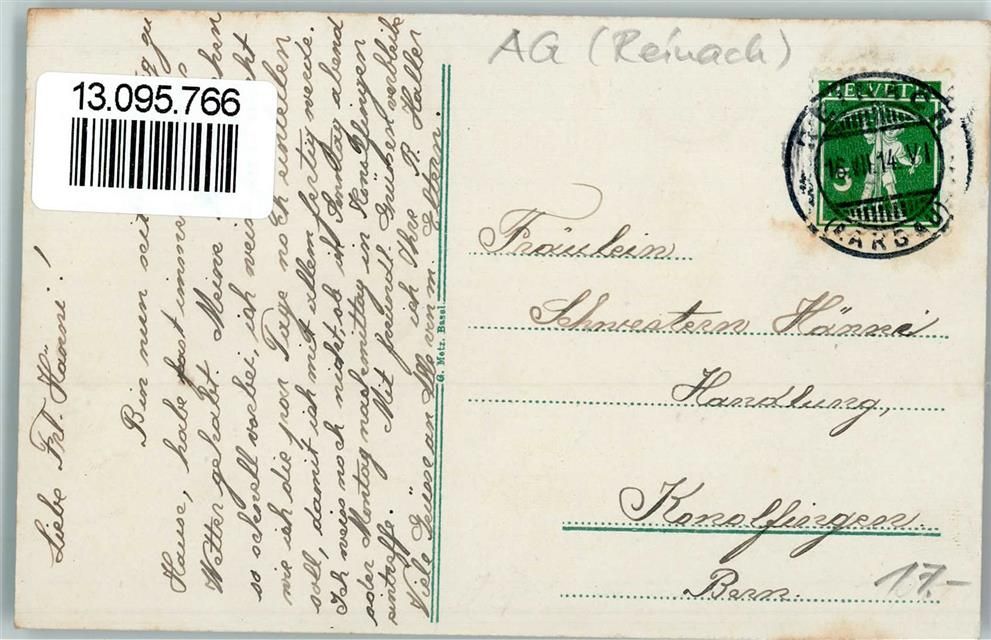 AG (Reinach)
13.095.766
HELVETIA
16.VII.14. VI
(AARGAU)
Liebe Frl. Hänni!
Bin nun seit
zu
Hause, habe fast immer
Wetter gehabt. Meine
so schnell vorbei, ich weis
wie ich die paar Tage noch einteilen
soll, damit ich mit allem fertig werde.
Ich weis noch nicht, ob ich Sontag abend
oder Montag nachmittag in Konolfingen
eintreffe. Mit freundl. Grüssen verbleibe
ich Ihre R. Haller
Viele Grüsse an
G. Metz, Basel.
Fräulein
Schwestern Hänni
Handlung,
Konolfingen.
Bern.
17.-